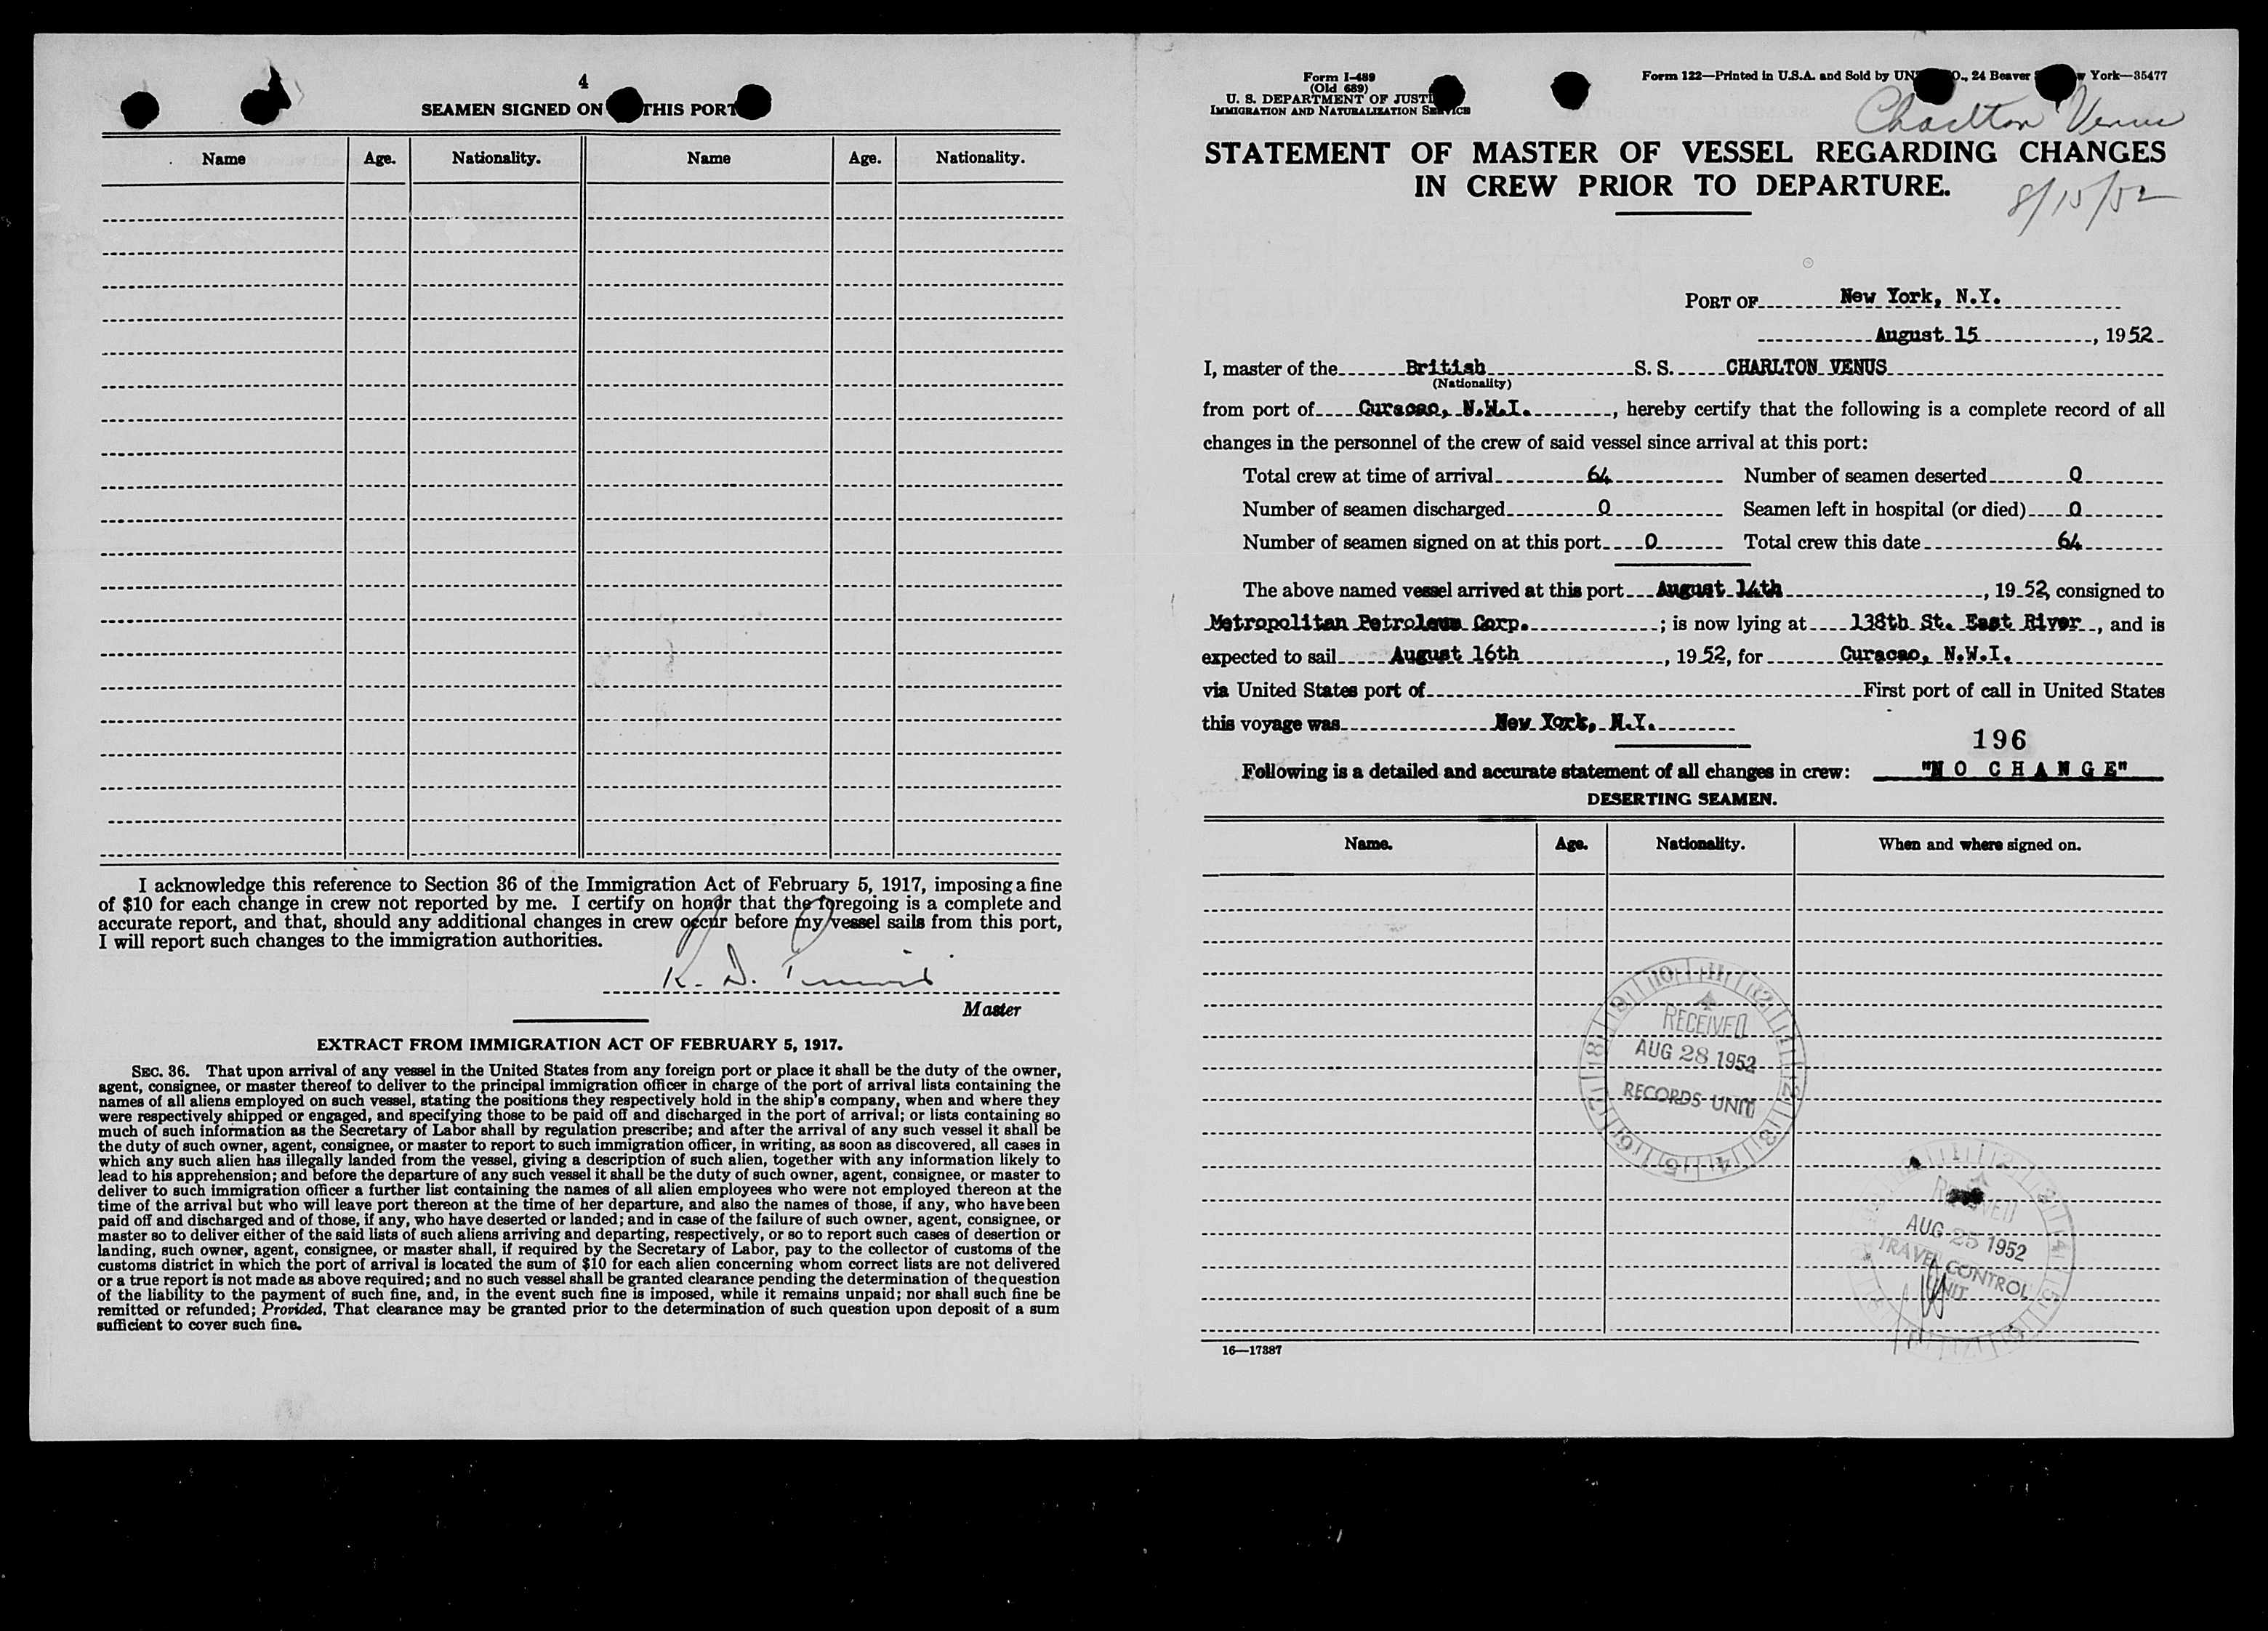 4
SEAMEN SIGNED ON THIS PORT
Name Age. Nationality. Name Age. Nationality.
I acknowledge this reference to Section 36 of the Immigration Act of February 5, 1917, imposing a fine
of $10 for each change in crew not reported by me. I certify on honor that the foregoing is a complete and
accurate report, and that, should any additional changes in crew occur before my vessel sails from this port,
I will report such changes to the immigration authorities.
K. D.
Master
EXTRACT FROM IMMIGRATION ACT OF FEBRUARY 5, 1917.
SEC. 36. That upon arrival of any vessel in the United States from any foreign port or place it shall be the duty of the owner,
agent, consignee, or master thereof to deliver to the principal immigration officer in charge of the port of arrival lists containing the
names of all aliens employed on such vessel, stating the positions they respectively hold in the ship's company, when and where they
were respectively shipped or engaged, and specifying those to be paid off and discharged in the port of arrival; or lists containing so
much of such information as the Secretary of Labor shall by regulation prescribe; and after the arrival of any such vessel it shall be
the duty of such owner, agent, consignee, or master to report to such immigration officer, in writing, as soon as discovered, all cases in
which any such alien has illegally landed from the vessel, giving a description of such alien, together with any information likely to
lead to his apprehension; and before the departure of any such vessel it shall be the duty of such owner, agent, consignee, or master to
deliver to such immigration officer a further list containing the names of all alien employees who were not employed thereon at the
time of the arrival but who will leave port thereon at the time of her departure, and also the names of those, if any, who have been
paid off and discharged and of those, if any, who have deserted or landed; and in case of the failure of such owner, agent, consignee, or
master so to deliver either of the said lists of such aliens arriving and departing, respectively, or so to report such cases of desertion or
landing, such owner, agent, consignee, or master shall, if required by the Secretary of Labor, pay to the collector of customs of the
customs district in which the port of arrival is located the sum of $10 for each alien concerning whom correct lists are not delivered
or a true report is not made as above required; and no such vessel shall be granted clearance pending the determination of the question
of the liability to the payment of such fine, and, in the event such fine is imposed, while it remains unpaid; nor shall such fine be
remitted or refunded; Provided, That clearance may be granted prior to the determination of such question upon deposit of a sum
sufficient to cover such fine.
Form I-489
(Old 689)
U. S. DEPARTMENT OF JUSTI
IMMIGRATION AND NATURALIZATION SERVICE
Form 122—Printed in U.S.A. and Sold by UN O., 24 Beaver York—35477
Charlton Venus
STATEMENT OF MASTER OF VESSEL REGARDING CHANGES
IN CREW PRIOR TO DEPARTURE.
8/15/52
PORT OF New York, N.Y.
August 15, 1952
I, master of the British S. S. CHARLTON VENUS
(Nationality)
from port of Curacao, N.W.I., hereby certify that the following is a complete record of all
changes in the personnel of the crew of said vessel since arrival at this port:
Total crew at time of arrival 64 Number of seamen deserted 0
Number of seamen discharged 0 Seamen left in hospital (or died) 0
Number of seamen signed on at this port 0 Total crew this date 64
The above named vessel arrived at this port August 14th, 1952, consigned to
Metropolitan Petroleum Corp.; is now lying at 138th St. East River, and is
expected to sail August 16th, 1952, for Curacao, N.W.I.
via United States port of First port of call in United States
this voyage was New York, N.Y.
196
Following is a detailed and accurate statement of all changes in crew: "NO CHANGE"
DESERTING SEAMEN.
Name. Age. Nationality. When and where signed on.
RECEIVED
AUG 28 1952
RECORDS UNIT
RECEIVED
AUG 25 1952
TRAVEL CONTROL
UNIT
16—17387